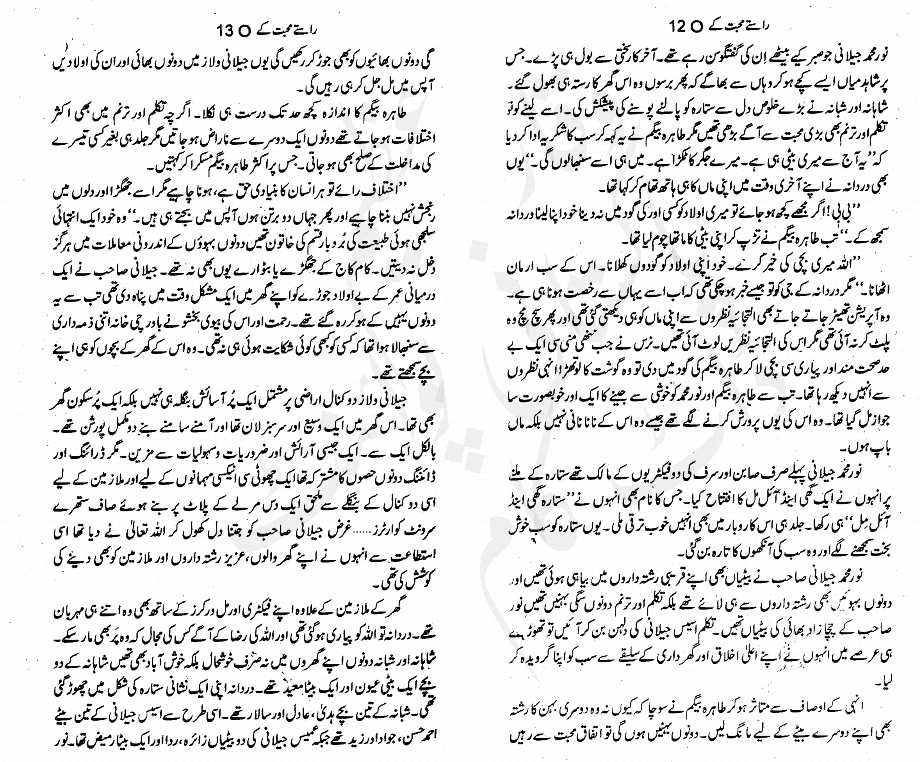 راستے محبت کے ○ 12
نور محمد جیلانی جو صبر کیے بیٹھے ان کی گفتگو سن رہے تھے۔ آخر کار سختی سے بول ہی پڑے۔ جس
پر شاہد میاں ایسے کچے ہو کر وہاں سے بھاگے کہ پھر برسوں وہ اس گھر کا رستہ ہی بھول گئے۔
شاہانہ اور شبانہ نے بڑے خلوص دل سے ستارہ کو پالنے پوسنے کی پیشکش کی۔ اسے لینے کو تو
تکلم اور ترنم بھی بڑی محبت سے آگے بڑھی تھیں مگر طاہرہ بیگم نے یہ کہہ کر سب کا شکریہ ادا کر دیا
کہ ”یہ آج سے میری بیٹی ہی ہے۔ میرے جگر کا ٹکڑا ہے۔ میں ہی اسے سنبھالوں گی۔“ یوں
بھی دردانہ نے اپنے آخری وقت میں اپنی ماں کا ہی ہاتھ تھام کر کہا تھا۔
”بی بی! اگر مجھے کچھ ہو جائے تو میری اولاد کو کسی اور کی گود میں نہ دینا خود اپنا لینا دردانہ
سمجھ کے۔“ تب طاہرہ بیگم نے تڑپ کر اپنی بیٹی کا ماتھا چوم لیا تھا۔
”اللہ میری بچی کی خیر کرے۔ خود اپنی اولاد کو گودوں کھلانا۔ اس کے سب ارمان
اٹھانا۔“ مگر دردانہ کے جی کو تو جیسے خبر ہو چکی تھی کہ اب اسے یہاں سے رخصت ہونا ہی ہے۔
وہ آپریشن تھیٹر جاتے جاتے بھی التجائیہ نظروں سے اپنی ماں کو ہی دیکھتی گئی تھی اور پھر سچ مچ وہ
پلٹ کر نہ آئی تھی مگر اس کی التجائیہ نظریں لوٹ آئی تھیں۔ نرس نے جب ننھی منی سی ایک بے
حد صحت مند اور پیاری سی بچی لا کر طاہرہ بیگم کی گود میں دی تو وہ گوشت کا لوتھڑا انہی نظروں
سے انہیں دیکھ رہا تھا۔ تب سے طاہرہ بیگم اور نور محمد کو خوشی سے جینے کا ایک اور خوبصورت سا
جواز مل گیا تھا۔ وہ اس کی یوں پرورش کرنے لگے تھے جیسے وہ اس کے نانا نانی نہیں بلکہ ماں
باپ ہوں۔
نور محمد جیلانی پہلے صرف صابن اور سرف کی دو فیکٹریوں کے مالک تھے ستارہ کے ملنے
پر انہوں نے ایک گھی اینڈ آئل مل کا افتتاح کیا۔ جس کا نام بھی انہوں نے ”ستارہ گھی اینڈ
آئل مل“ ہی رکھا۔ جلد ہی اس کاروبار میں بھی انہیں خوب ترقی ملی۔ یوں ستارہ کو سب خوش
بخت سمجھنے لگے اور وہ سب کی آنکھوں کا تارہ بن گئی۔
نور محمد جیلانی صاحب نے بیٹیاں بھی اپنے قریبی رشتہ داروں میں بیاہی ہوئی تھیں اور
دونوں بہوئیں بھی رشتہ داروں سے ہی لائے تھے بلکہ تکلم اور ترنم دونوں سگی بہنیں تھیں نور
صاحب کے چچا زاد بھائی کی بیٹیاں تھیں۔ تکلم انیس جیلانی کی دلہن بن کر آئیں تو تھوڑے
ہی عرصے میں انہوں نے اپنے اعلیٰ اخلاق اور گھر داری کے سلیقے سے سب کو اپنا گرویدہ کر
لیا۔
انہی کے اوصاف سے متاثر ہو کر طاہرہ بیگم نے سوچا کہ کیوں نہ وہ دوسری بہن کا رشتہ
بھی اپنے دوسرے بیٹے کے لیے مانگ لیں۔ دونوں بہنیں ہوں گی تو اتفاق محبت سے رہیں
راستے محبت کے ○ 13
گی دونوں بھائیوں کو بھی جوڑ کر رکھیں گی یوں جیلانی ولاز میں دونوں بھائی اور ان کی اولادیں
آپس میں مل جل کر ہی رہیں گی۔
طاہرہ بیگم کا اندازہ کچھ حد تک درست ہی نکلا۔ اگرچہ تکلم اور ترنم میں بھی اکثر
اختلافات ہو جاتے تھے دونوں ایک دوسرے سے ناراض ہو جاتیں مگر جلد ہی بغیر کسی تیسرے
کی مداخلت کے صلح بھی ہو جاتی۔ جس پر اکثر طاہرہ بیگم مسکرا کر کہتیں۔
”اختلاف رائے تو ہر انسان کا بنیادی حق ہے، ہونا چاہیے مگر اسے جھگڑا اور دلوں میں
رنجش نہیں بننا چاہیے اور پھر جہاں دو برتن ہوں آپس میں بجتے ہی ہیں۔“ وہ خود ایک انتہائی
سلجھی ہوئی طبیعت کی بُردبار قسم کی خاتون تھیں دونوں بہوؤں کے اندرونی معاملات میں ہرگز
دخل نہ دیتیں۔ کام کاج کے جھگڑے یا بٹوارے یوں بھی نہ تھے۔ جیلانی صاحب نے ایک
درمیانی عمر کے بے اولاد جوڑے کو اپنے گھر میں ایک مشکل وقت میں پناہ دی تھی تب سے یہ
دونوں یہیں کے ہو کر رہ گئے تھے۔ رحمت اور اس کی بیوی بختو نے باورچی خانہ اتنی ذمہ داری
سے سنبھالا ہوا تھا کہ کسی کو بھی کوئی شکایت ہوئی ہی نہ تھی۔ وہ اس گھر کے بچوں کو ہی اپنے
بچے سمجھتے تھے۔
جیلانی ولاز دو کنال اراضی پر مشتمل ایک پُر آسائش بنگلہ ہی نہیں بلکہ ایک پُر سکون گھر
بھی تھا۔ اس گھر میں ایک وسیع اور سرسبز لان تھا اور آمنے سامنے بنے دو مکمل پورشن تھے۔
بالکل ایک سے۔ ایک جیسی آرائش اور ضروریات و سہولیات سے مزین۔ مگر ڈرائنگ اور
ڈائننگ دونوں حصوں کا مشترکہ تھا ایک چھوٹی سی انیکسی مہمانوں کے لیے اور ملازمین کے لیے
اسی دو کنال کے بنگلے سے ملحق ایک دس مرلے کے پلاٹ پر بنے ہوئے صاف ستھرے
سرونٹ کوارٹرز...... غرض جیلانی صاحب کو جتنا دل کھول کر اللہ تعالیٰ نے دیا تھا اسی
استطاعت سے انہوں نے اپنے گھر والوں، عزیز رشتہ داروں اور ملازمین کو بھی دینے کی
کوشش کی تھی۔
گھر کے ملازمین کے علاوہ اپنے فیکٹری اور مل ورکرز کے ساتھ بھی وہ اتنے ہی مہربان
تھے۔ دردانہ تو اللہ کو پیاری ہو گئی تھی اور اللہ کی رضا کے آگے کس کی مجال کہ وہ پر بھی مار سکے۔
شاہانہ اور شبانہ دونوں اپنے گھروں میں نہ صرف خوشحال بلکہ خوش آباد بھی تھیں شاہانہ کے دو
بچے ایک بیٹی عیون اور ایک بیٹا معیذ تھے۔ دردانہ اپنی ایک نشانی ستارہ کی شکل میں چھوڑ گئی
تھی۔ شبانہ کے تین بچے ہدیٰ، عادل اور سالار تھے۔ اسی طرح سے انیس جیلانی کے تین بیٹے
احمد حسن، جواد اور زید تھے جبکہ عمیس جیلانی کی دو بیٹیاں زائرہ، ردا اور ایک بیٹا رمیض تھا۔ نور